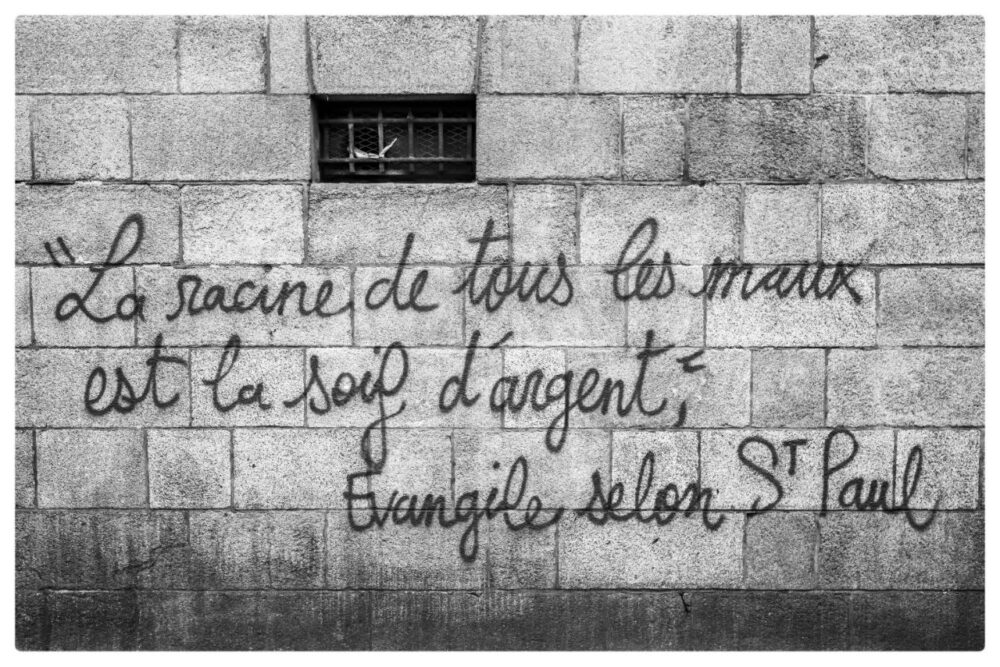 "La racine de tous les maux
est la soif d'argent",
Evangile selon ST Paul